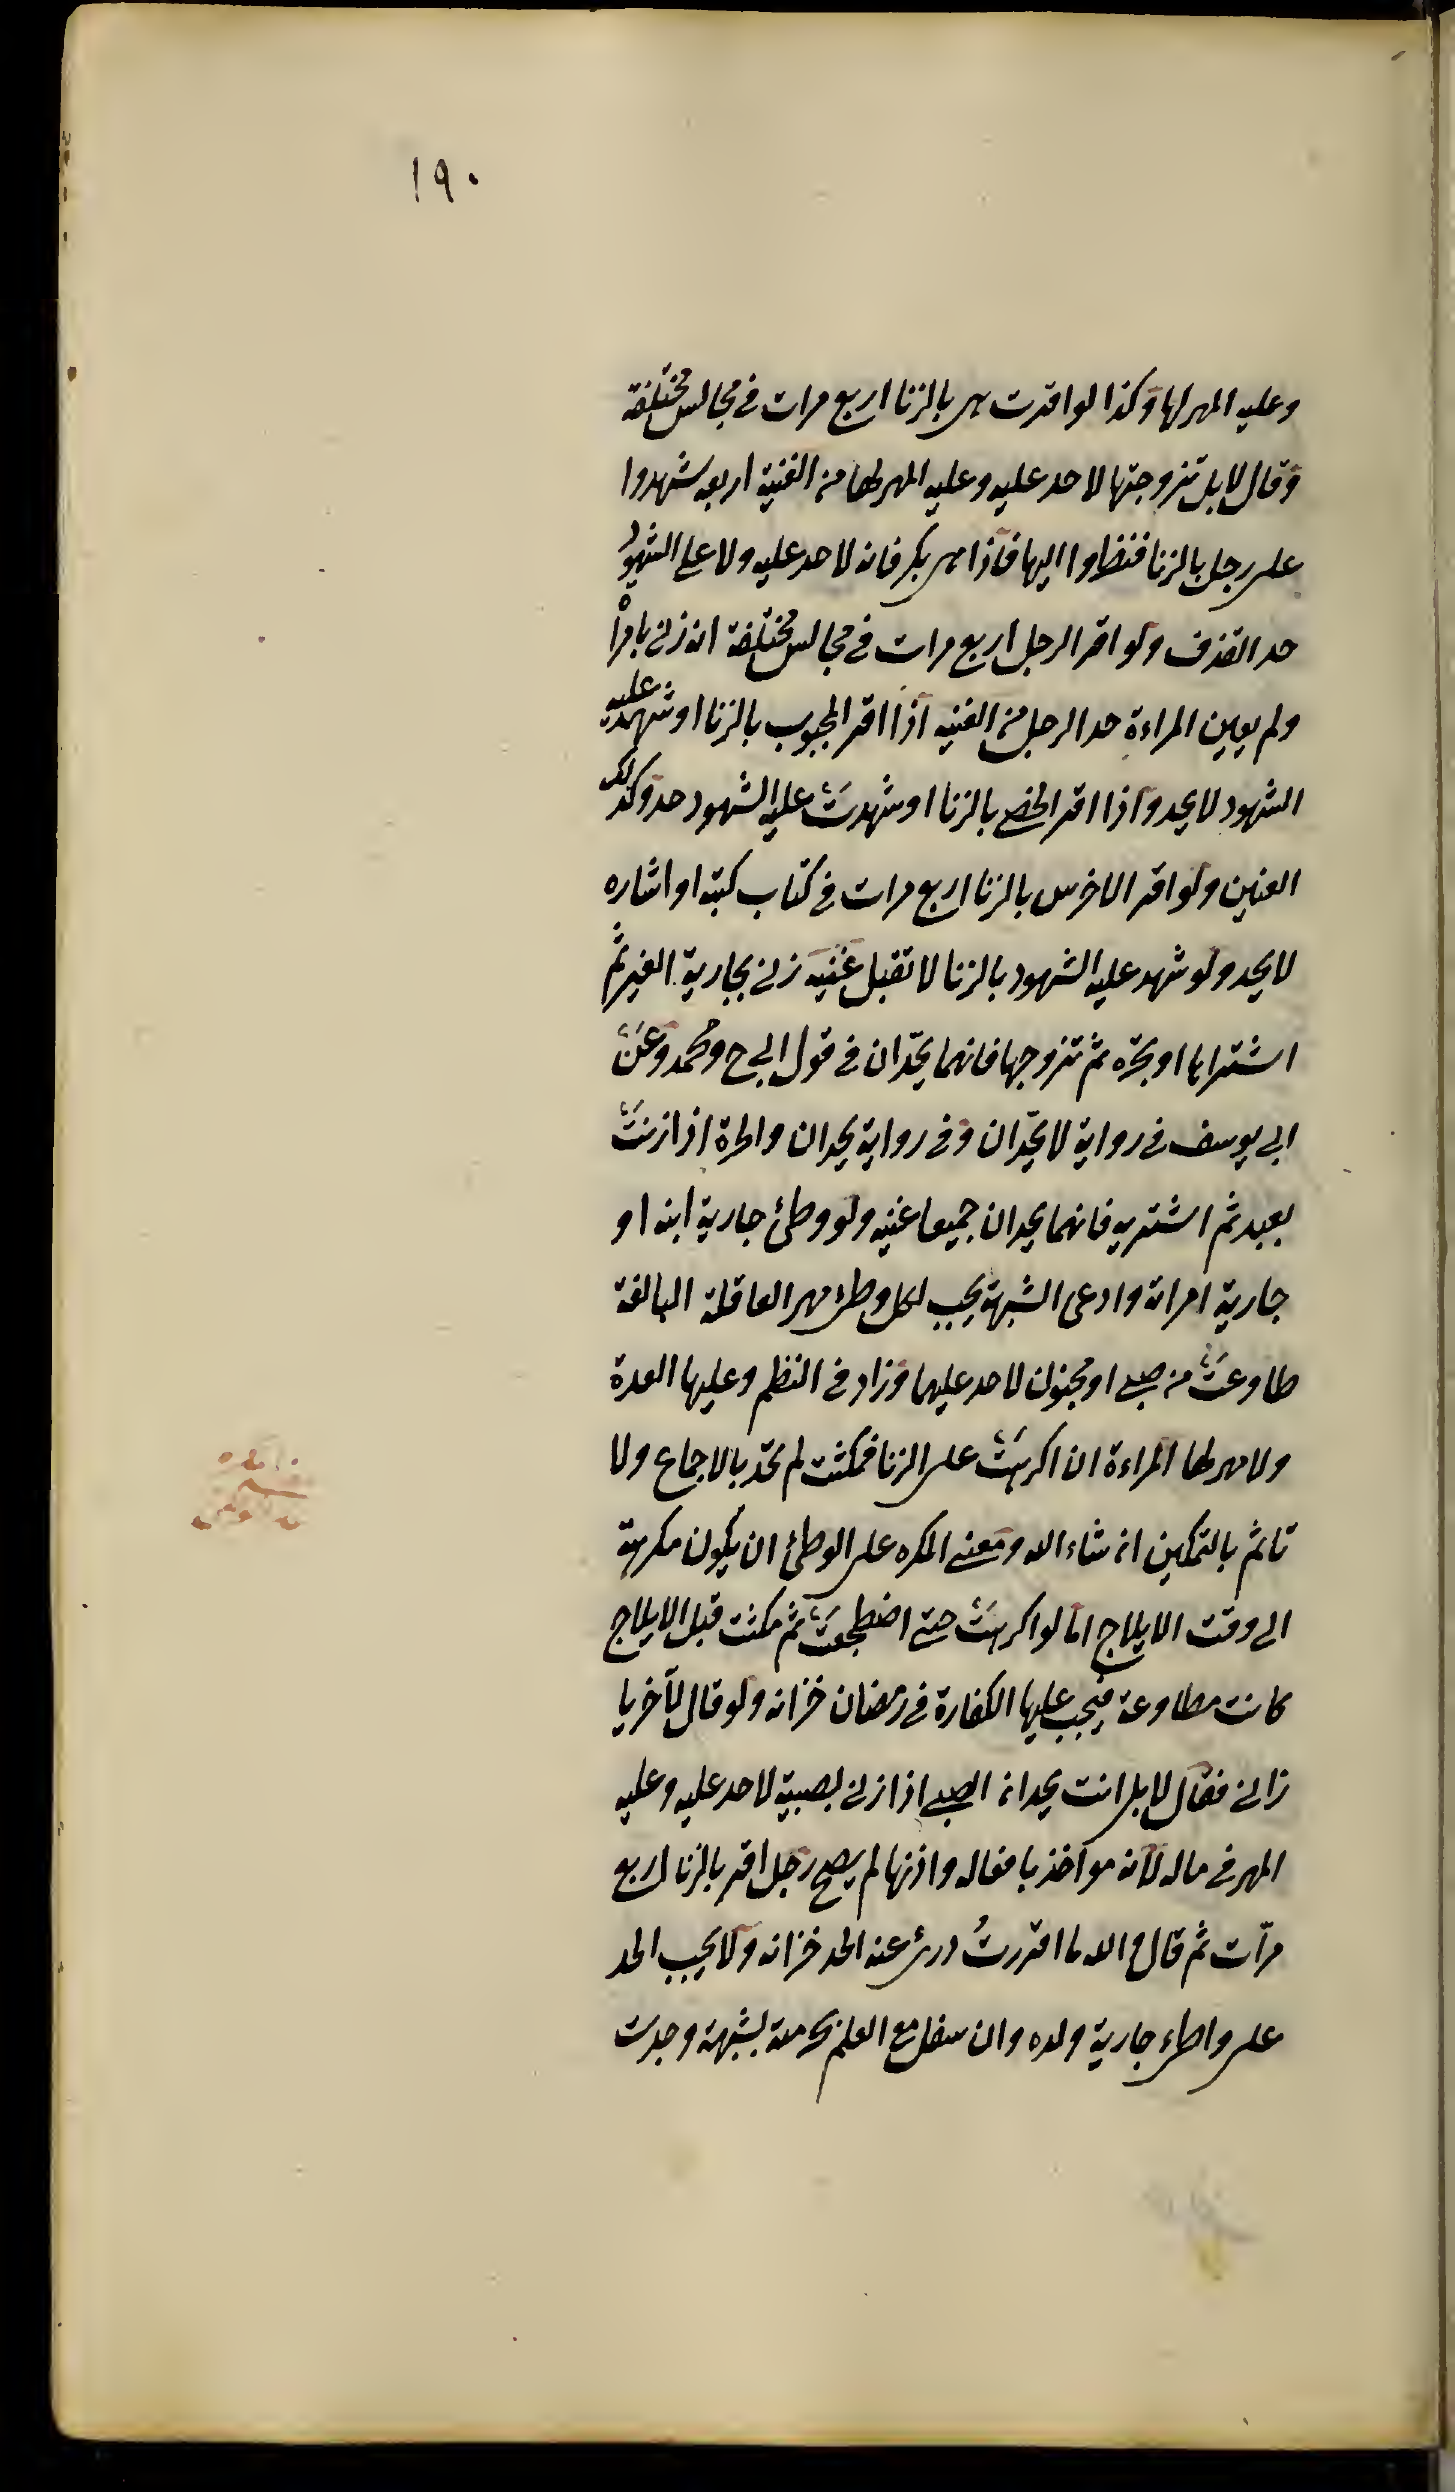 ١٩٠
وعليه المهر لها وكذا لو اقرت هى بالزنا اربع مرات فى مجالس مختلفة
وقال لا بل تزوجتها لا حد عليه وعليه المهر لها من الغنية اربعه شهدوا
على رجل بالزنا فنظروا اليها فاذا هى بكر فانه لا حد عليه ولا على الشهود
حد القذف ولو اقر الرجل اربع مرات فى مجالس مختلفة انه زنى بامرأ
ولم يعين المراءة حد الرجل من الغنيه اذا اقر المجبوب بالزنا او شهد عليه
الشهود لا يحد واذا اقر الخصى بالزنا او شهدت عليه الشهود حد وكذلك
العنين ولو اقر الاخرس بالزنا اربع مرات فى كتاب كتبه او اشاره
لا يحد ولو شهد عليه الشهود بالزنا لا تقبل غنيه زنى بجارية الغير ثم
اشتراها او بحره ثم تزوجها فانهما يحدّان فى قول ابى ح ومحمد وعن
ابى يوسف فى رواية لا يحدّان وفى رواية يحدان والحرة اذا زنت
بعبد ثم اشتريه فانهما يحدان جميعا غنيه ولو وطئ جارية ابنه او
جارية امراته وادعى الشبهة يجب لكل وطئ مهر العاقلة البالغة
طاوعت من صبى او مجنون لا حد عليهما وزاد فى النظم وعليها العدة
ولا مهر لها المراءة ان اكرهت على الزنا فمكنت لم تحدّ بالاجماع ولا
تاثم بالتمكين ان شاء الله ومعنى المكره على الوطئ ان يكون مكرهة
الى وقت الايلاج امّا لو اكرهت حتى اضطجعت ثم مكنت قبل الايلاج
كانت مطاوعة فيجب عليها الكفارة فى رمضان خزانه ولو قال لآخر يا
زانى فقال لا بل انت يحدان الصبى اذا زنى بصبية لا حد عليه وعليه
المهر فى ماله لانه مواخذ بافعاله واذنها لم يصح رجل اقر بالزنا اربع
مرّات ثم قال والله ما اقررتُ درئ عنه الحد خزانه ولا يجب الحد
على واطىء جارية ولده وان سفل مع العلم بحرمته لشبهة وجدت